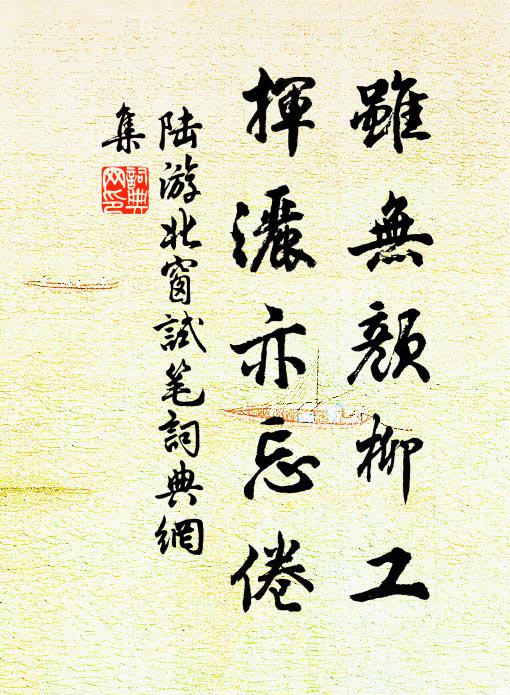 雖無顔柳工
揮灑亦忘倦
陸游北窗試笔詞典網
集
詞典
网印